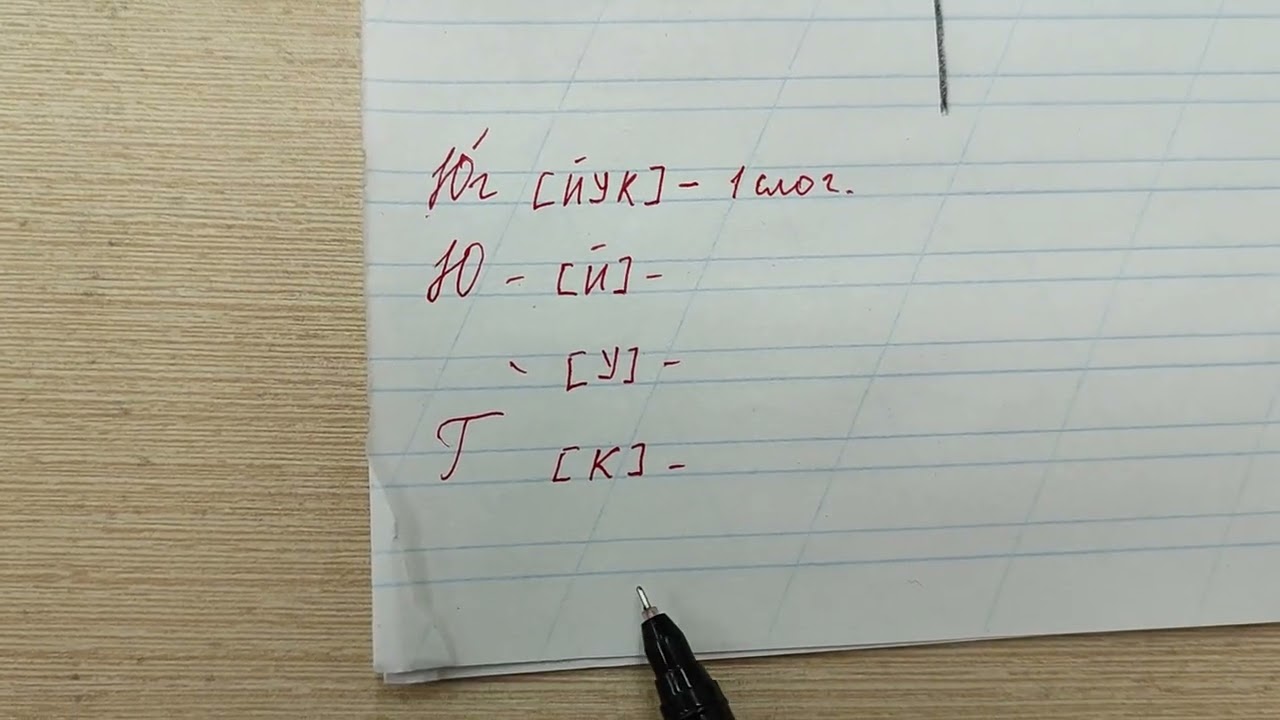 Ю́г [ЙУК] - 1 слог.
Ю - [Й] -
- [У] -
Г [К] -